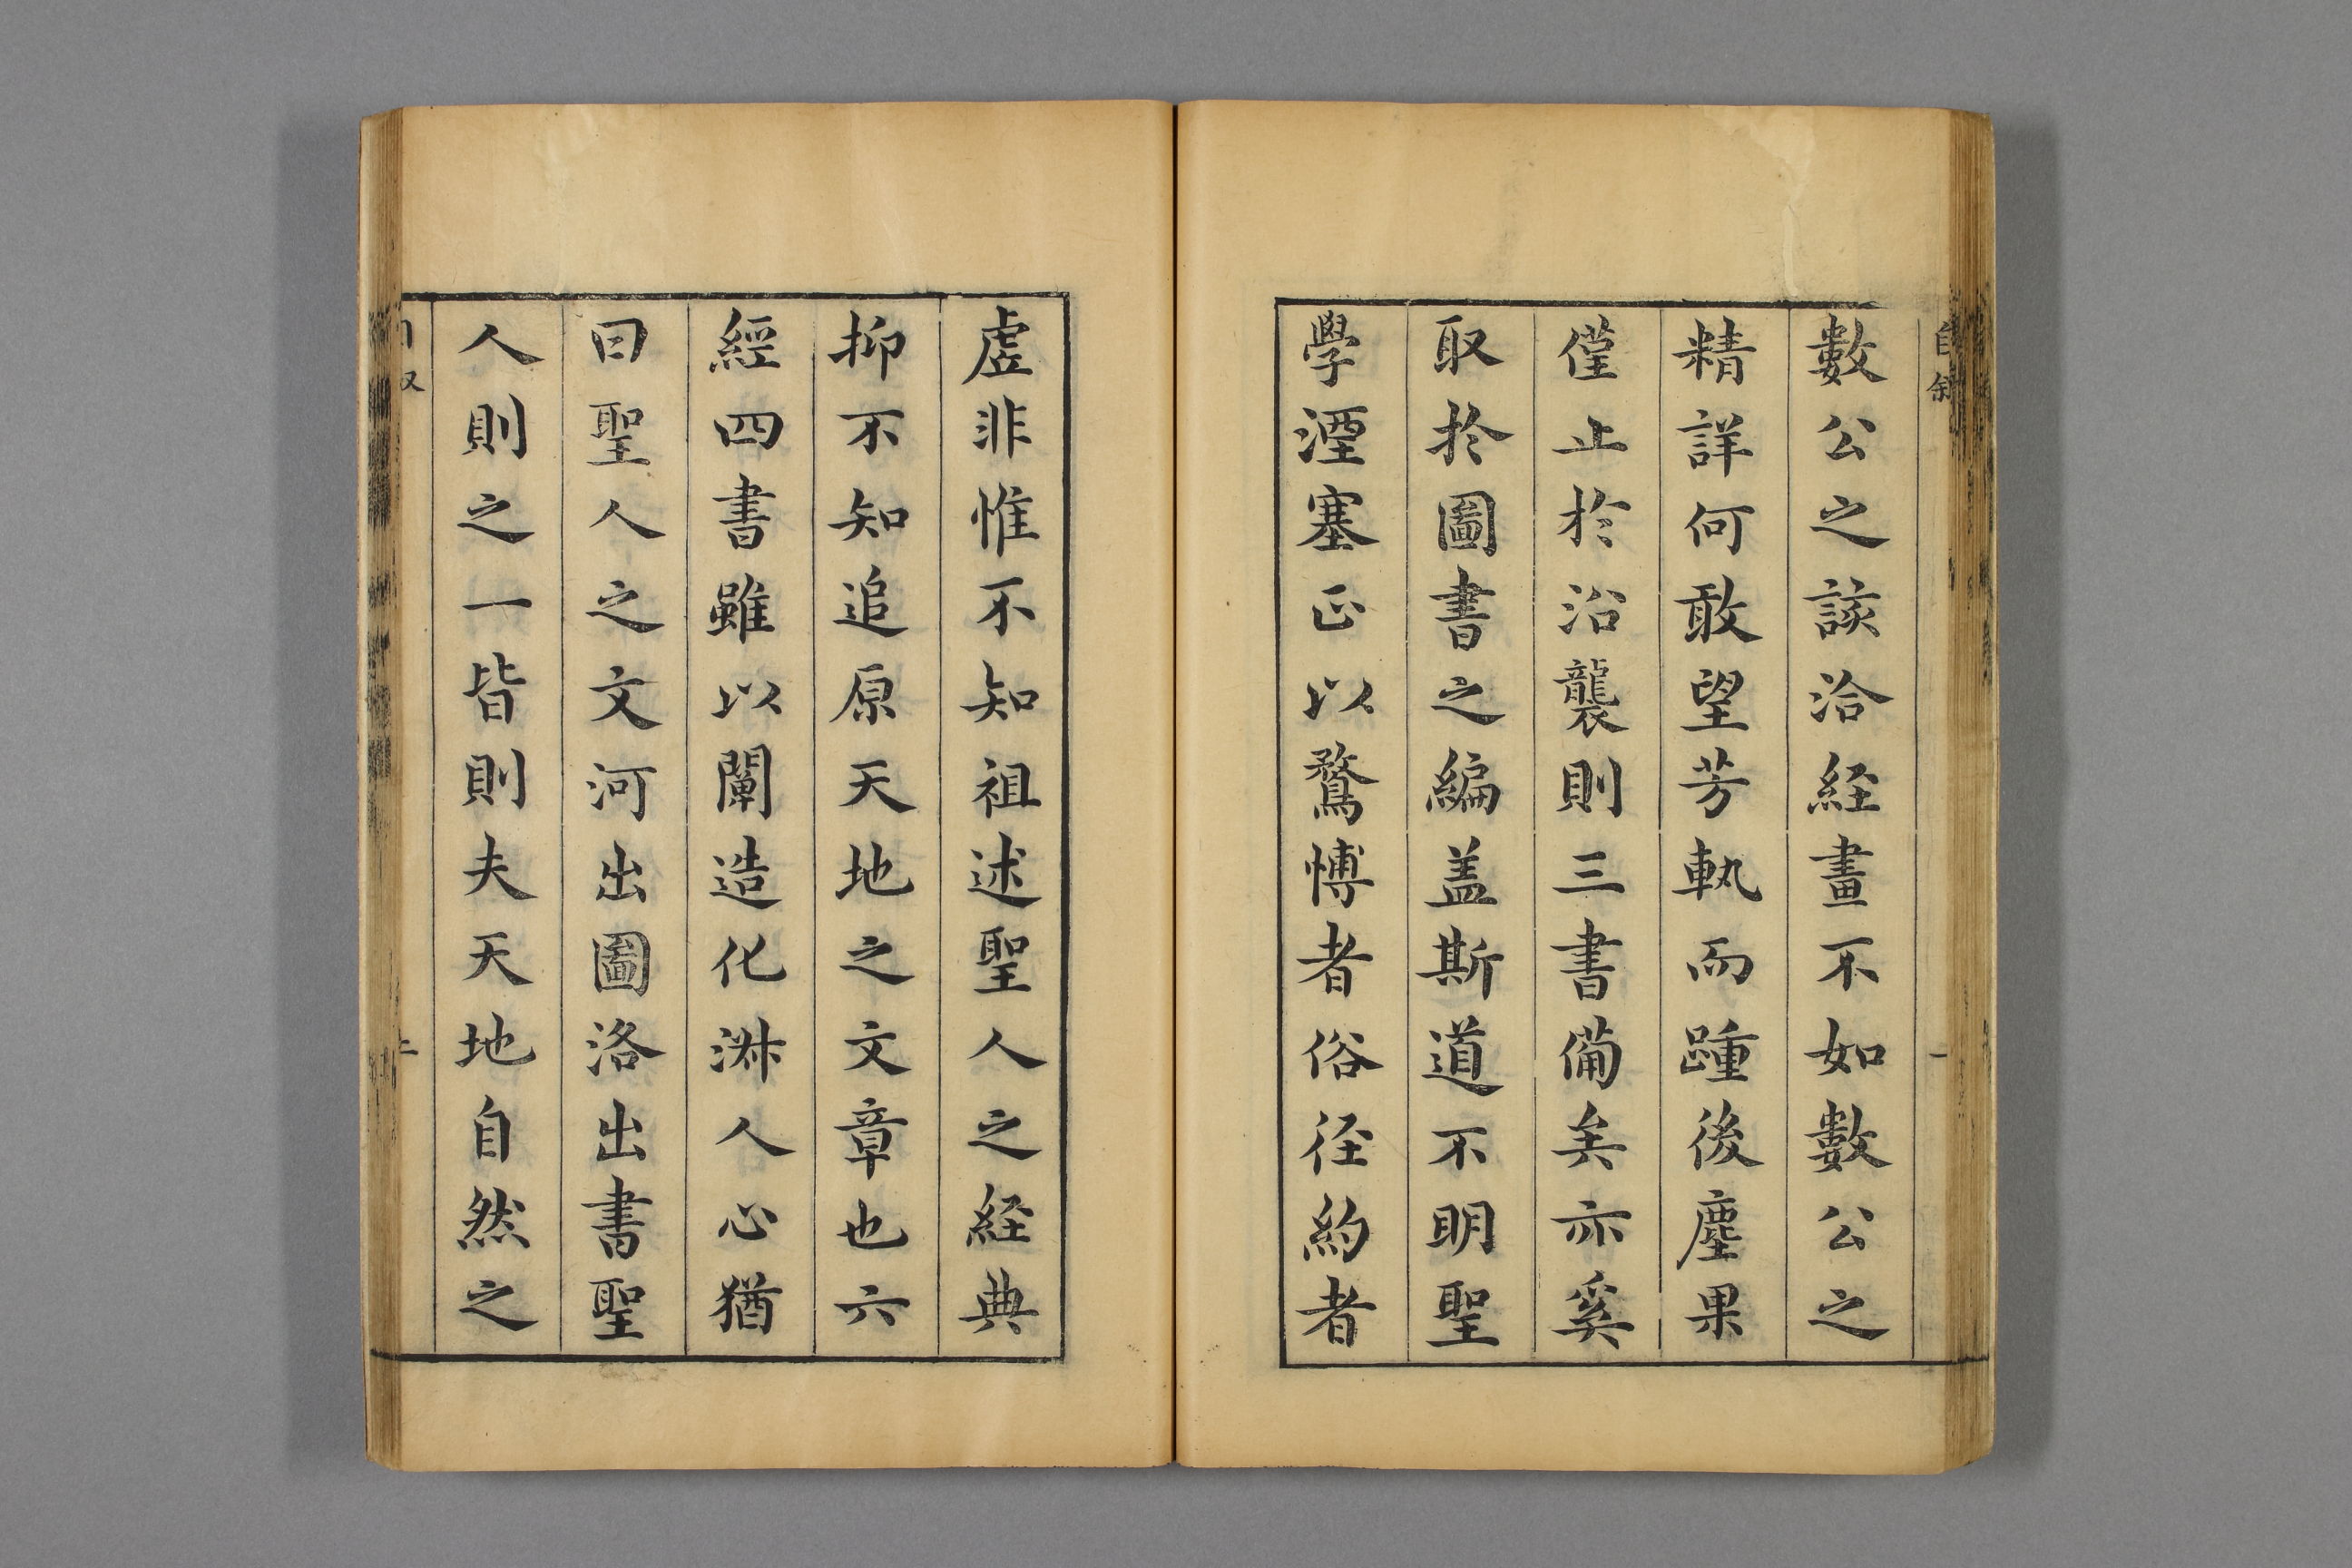 自叙
一
數公之該洽経畫不如數公之
精詳何敢望芳軌而踵後塵果
僅止於沿襲則三書備矣亦奚
取於圖書之編盖斯道不明聖
學湮塞正以騖愽者俗徑約者
虛非惟不知祖述聖人之経典
抑不知追原天地之文章也六
經四書雖以闡造化淑人心猶
曰聖人之文河出圖洛出書聖
人則之一皆則夫天地自然之